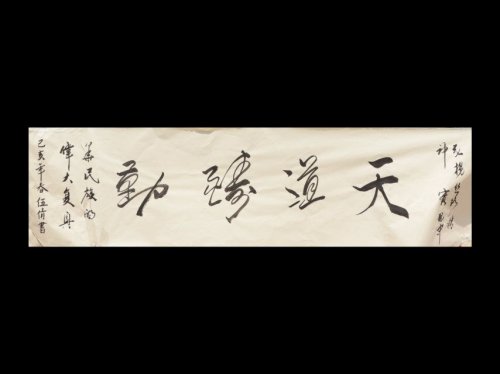 弘揚丝路精
神 實現中
天道醻勤
華民族的
偉大复興
己亥年春伍倩書